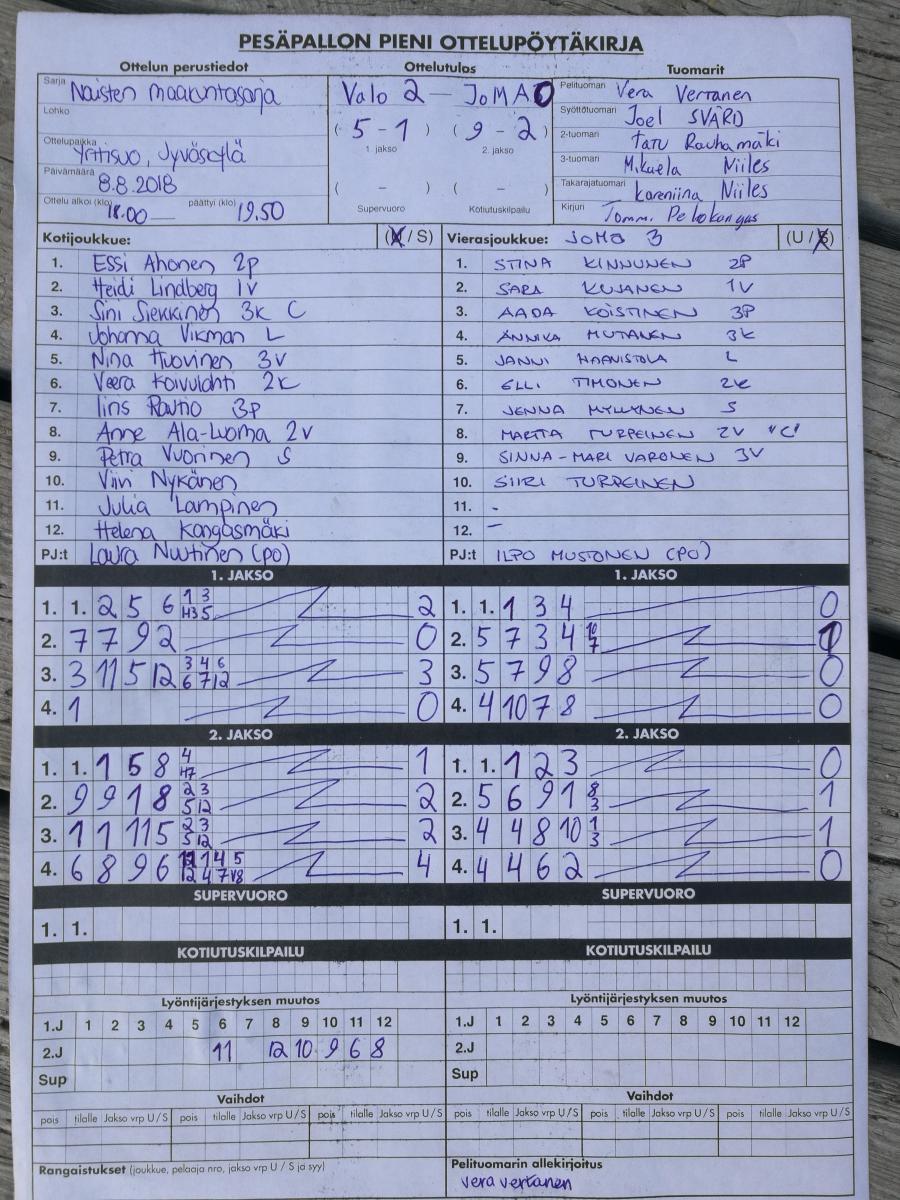 PESÄPALLON PIENI OTTELUPÖYTÄKIRJA
Ottelun perustiedot Ottelutulos Tuomarit
Sarja Naisten maakuntasarja
Lohko
Ottelupaikka Yritisuo, Jyväskylä
Päivämäärä 8.8.2018
Ottelu alkoi (klo) 18.00 päättyi (klo) 19.50
Valo 2 – JoMA
( 5 - 1 ) ( 9 - 2 )
1. jakso 2. jakso
( – ) ( – )
Supervuoro Kotiutuskilpailu
Pelituomari Vera Vertanen
Syöttötuomari Joel SVÄRD
2-tuomari Tatu Rauhamäki
3-tuomari Mikaela Niiles
Takarajatuomari Kareniina Niiles
Kirjuri Tommi Peltokangas
Kotijoukkue: (U / S)
1. Essi Ahonen 2p
2. Heidi Lindberg 1v
3. Sini Siekkinen 3k C
4. Johanna Vikman L
5. Nina Huovinen 3v
6. Veera Koivulahti 2k
7. Iiris Rautio 3p
8. Anne Ala-Luoma 2v
9. Petra Vuorinen S
10. Viivi Nykänen
11. Julia Lampinen
12. Helena Kangasmäki
PJ:t Laura Nuutinen (po)
Vierasjoukkue: JoMa 3 (U / S)
1. STINA KINNUNEN 2P
2. SARA KUJANEN 1V
3. AADA KOISTINEN 3P
4. ANNIKA MUTANEN 3K
5. JANNI HAANISTOLA L
6. ELLI TIMONEN 2K
7. JENNA MYLLYNEN S
8. MARTTA TURPEINEN 2V "C"
9. SINNA-MARI VARONEN 3V
10. SIIRI TURPEINEN
11. -
12. –
PJ:t ILPO MUSTONEN (PO)
1. JAKSO
1. 1. 2 5 6 1 3 2
H3 5
2. 7 7 9 2 0
3. 3 11 5 12 3 4 6 3
6 7 12
4. 1 0
1. JAKSO
1. 1. 1 3 4 0
2. 5 7 3 4 10 1
7
3. 5 7 9 8 0
4. 4 10 7 8 0
2. JAKSO
1. 1. 1 5 8 4 1
H7
2. 9 9 1 8 2 3 2
5 12
3. 1 1 11 5 2 3 2
5 12
4. 6 8 9 6 11 1 4 5 4
12 4 7 V8
2. JAKSO
1. 1. 1 2 3 0
2. 5 6 9 1 8 1
3
3. 4 4 8 10 1 1
3
4. 4 4 6 2 0
SUPERVUORO
1. 1.
SUPERVUORO
1. 1.
KOTIUTUSKILPAILU
KOTIUTUSKILPAILU
Lyöntijärjestyksen muutos
1.J 1 2 3 4 5 6 7 8 9 10 11 12
2.J 11 12 10 9 6 8
Sup
Lyöntijärjestyksen muutos
1.J 1 2 3 4 5 6 7 8 9 10 11 12
2.J
Sup
Vaihdot
pois tilalle Jakso vrp U / S pois tilalle Jakso vrp U / S pois tilalle Jakso vrp U / S
Vaihdot
pois tilalle Jakso vrp U / S pois tilalle Jakso vrp U / S pois tilalle Jakso vrp U / S
Rangaistukset (joukkue, pelaaja nro, jakso vrp U / S ja syy)
Pelituomarin allekirjoitus
vera vertanen